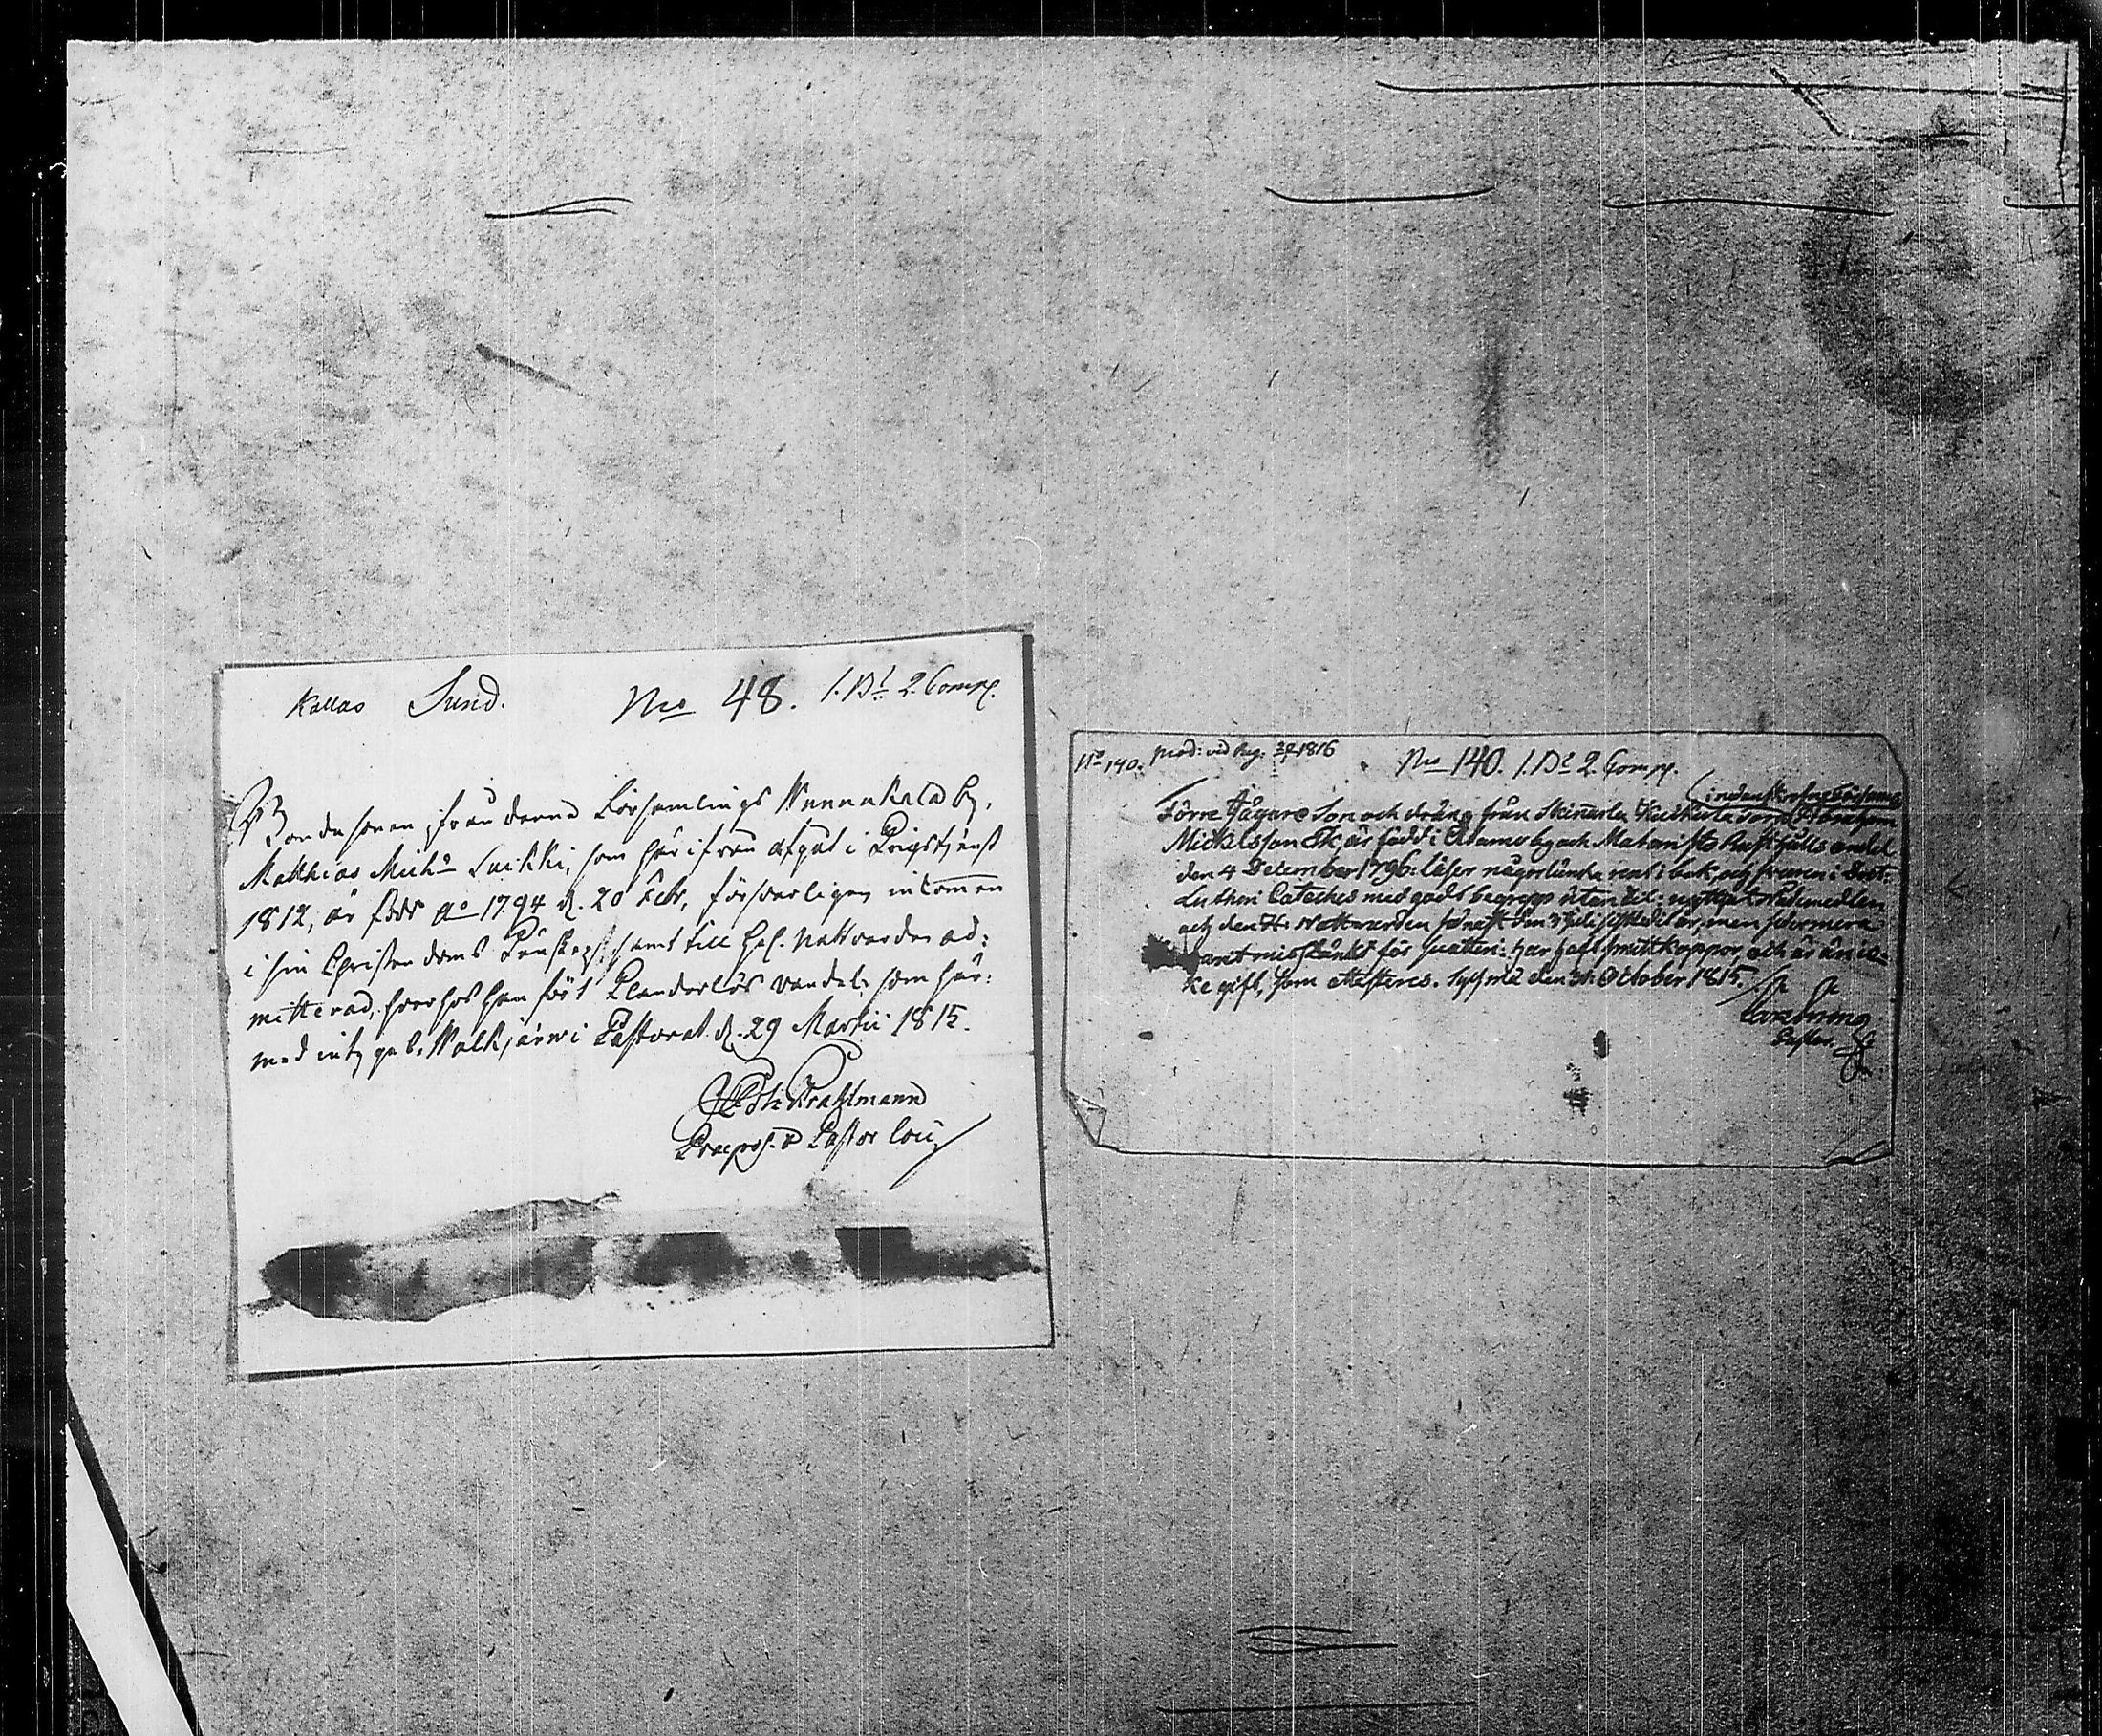 Kallas Sund. No 48. 1. Bt 2. Comp.
Bondesonen ifrån denna Församlings Nunnukala by,
Matthias Michs Suikki, som härifrån afgåt i Krigstjenst
1812, är född Ao 1794 d. 20 Febr, försvarligen inkommen
i sin Christendoms Kunskap, samt till Hel. Nattvarden ad-
mitterad, hvarhos han fört Klanderlös vandel; som här-
med intygas. Walkjärwi Pastorat d. 29 Martii 1815.
Krahlmann
Praepos. & Pastor loci
No 140. prod: vid Reg. 1816 No 140. 1. Bt 2. Comp.
Förre Jägare Son och dräng från Skinarla
Mickelsson Ek, är född i Adams by och Rusthålls andel
den 4 December 1796: läser någorlunda rent i bok och svaren i Doct:
Lutheri Cateches med godt begrepp utan til: nyttjat Nådemedlen
och den H: Nattwarden sistledit år, men
warit misstänkt för haft smittkoppor, och är än ic-
ke gift, som attesteras. den 31. October 1815.
Pastor.